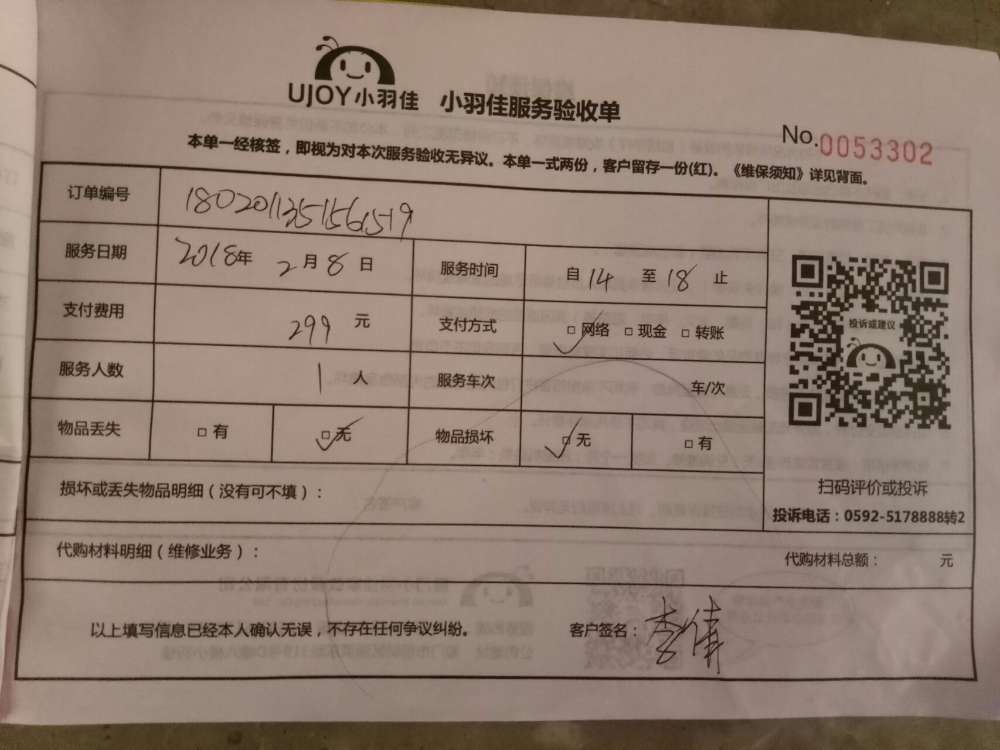 UJOY小羽佳 小羽佳服务验收单
No.0053302
本单一经核签，即视为对本次服务验收无异议。本单一式两份，客户留存一份(红)。《维保须知》详见背面。
订单编号 1802011351561519
服务日期 2018年 2月8日 服务时间 自14至18止
支付费用 299元 支付方式 □网络 □现金 □转账
服务人数 1人 服务车次 车/次
物品丢失 □有 □无 物品损坏 □无 □有
投诉或建议
扫码评价或投诉
投诉电话：0592-5178888转2
损坏或丢失物品明细（没有可不填）：
代购材料明细（维修业务）： 代购材料总额： 元
以上填写信息已经本人确认无误，不存在任何争议纠纷。 客户签名：李倩